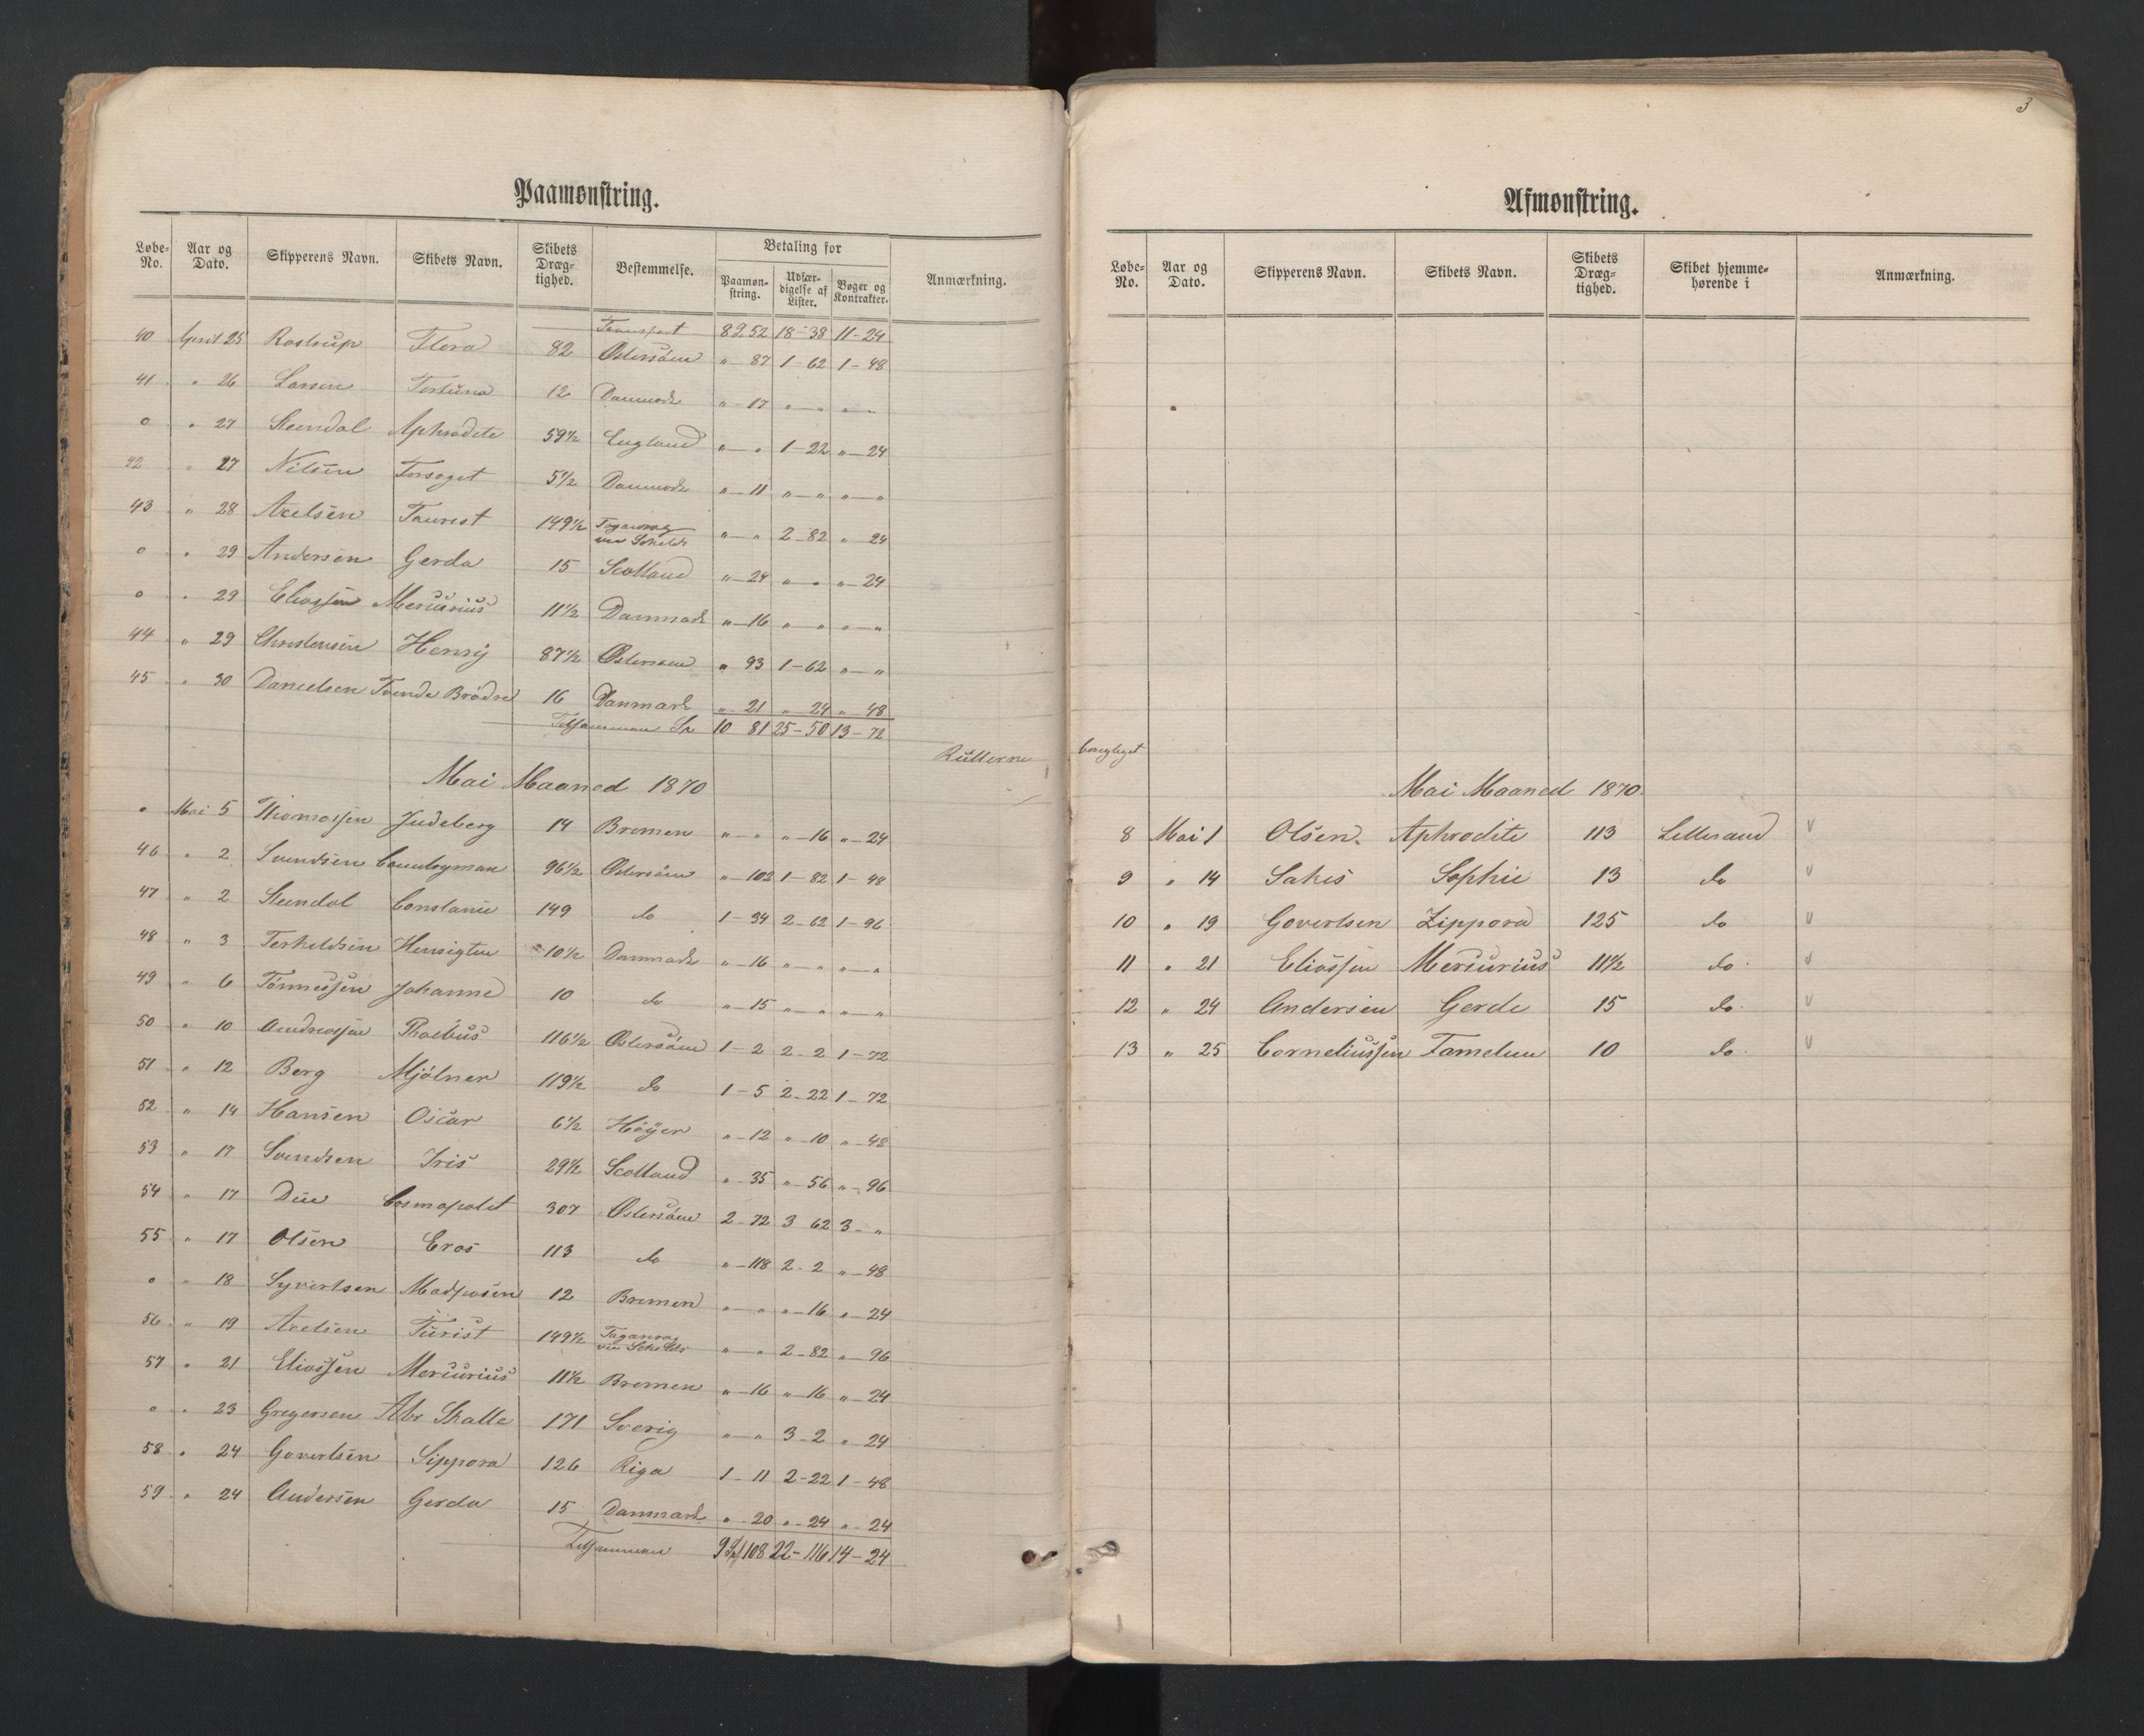 Paamønstring.
Løbe-No. | Aar og Dato. | Skipperens Navn. | Skibets Navn. | Skibets Dræg-tighed. | Bestemmelse. | Betaling for | Anmærkning.
Paamøn-string. | Udfær-digelse af Lister. | Bøger og Kontrakter.
Transport 8 2 52 18-38 11-24
40 April 25 Rostrup Flora 82 Østersøen " 87 1-62 1-48
41 " 26 Larsen Fortuna 12 Danmark "-17 "-" "-"
o " 27 Steendal Aphrodite 59½ England "-" 1-22 "-24
42 " 27 Nilsen Forsøget 5½ Danmark "-11 "-" "-"
43 " 28 Axelsen Tourist 149½ Taganrog via Schields "-" 2-82 " 24
o " 29 Andersen Gerda 15 Scotland "-24 "-" "-24
o " 29 Eliassen Mercurius 11½ Danmark "-16 "-" "-"
44 " 29 Christensen Henrij 87½ Østersøen " 93 1-62 "-"
45 " 30 Danielsen Tvende Brødre 16 Danmark " 21 " 24 " 48
Tilsammen Sp 10 81 25-50 13-72
Mai Maaned 1870
o Mai 5 Thomassen Judeberg 14 Bremen "-" "-16 "-24
46 " 2 Svendsen Countryman 96½ Østersøen "-102 1-82 1-48
47 " 2 Steendal Constance 149 do 1-34 2-62 1-96
48 " 3 Terkeldsen Hensigten 10½ Danmark "-16 "-" "-"
49 " 6 Tønnessen Johanne 10 do "-15 "-" "-"
50 " 10 Andreassen Phoebus 116½ Østersøen 1-2 2-2 1-72
51 " 12 Berg Mjølner 119½ do 1-5 2-22 1-72
52 " 14 Hansen Oscar 6½ Høijer "-12 "-10 "-48
53 " 17 Svendsen Iris 29½ Scotland "-35 "-56 "-96
54 " 17 Due Cosmopolit 307 Østersøen 2-72 3 62 3-"
55 " 17 Olsen Eros 113 do "-118 2-2 "-48
o " 18 Syvertsen Madposen 12 Bremen "-" "-16 "-24
56 " 19 Axelsen Turist 149½ Taganrog via Schields "-" 2-82 "-96
57 " 21 Eliassen Mercurius 11½ Bremen "-16 "-16 "-24
o " 23 Gregersen Abr Skalle 171 Sverig "-" 3-2 "-24
58 " 24 Govertsen Sippora 126 Riga 1-11 2-22 1-48
59 " 24 Andersen Gerda 15 Danmark "-20 "-24 "-24
Tilsammen 9 108 22-116 14-24
3
Afmønstring.
Løbe-No. | Aar og Dato. | Skipperens Navn. | Skibets Navn. | Skibets Dræg-tighed. | Skibet hjemme-hørende i | Anmærkning.
Mai Maaned 1870.
8 Mai 1 Olsen Aphrodite 113 Lillesand v
9 " 14 Sakes Sophie 13 do v
10 " 19 Govertsen Zippora 125 do v
11 " 21 Eliassen Mercurius 11½ do v
12 " 24 Andersen Gerda 15 do v
13 " 25 Corneliussen Familien 10 do v